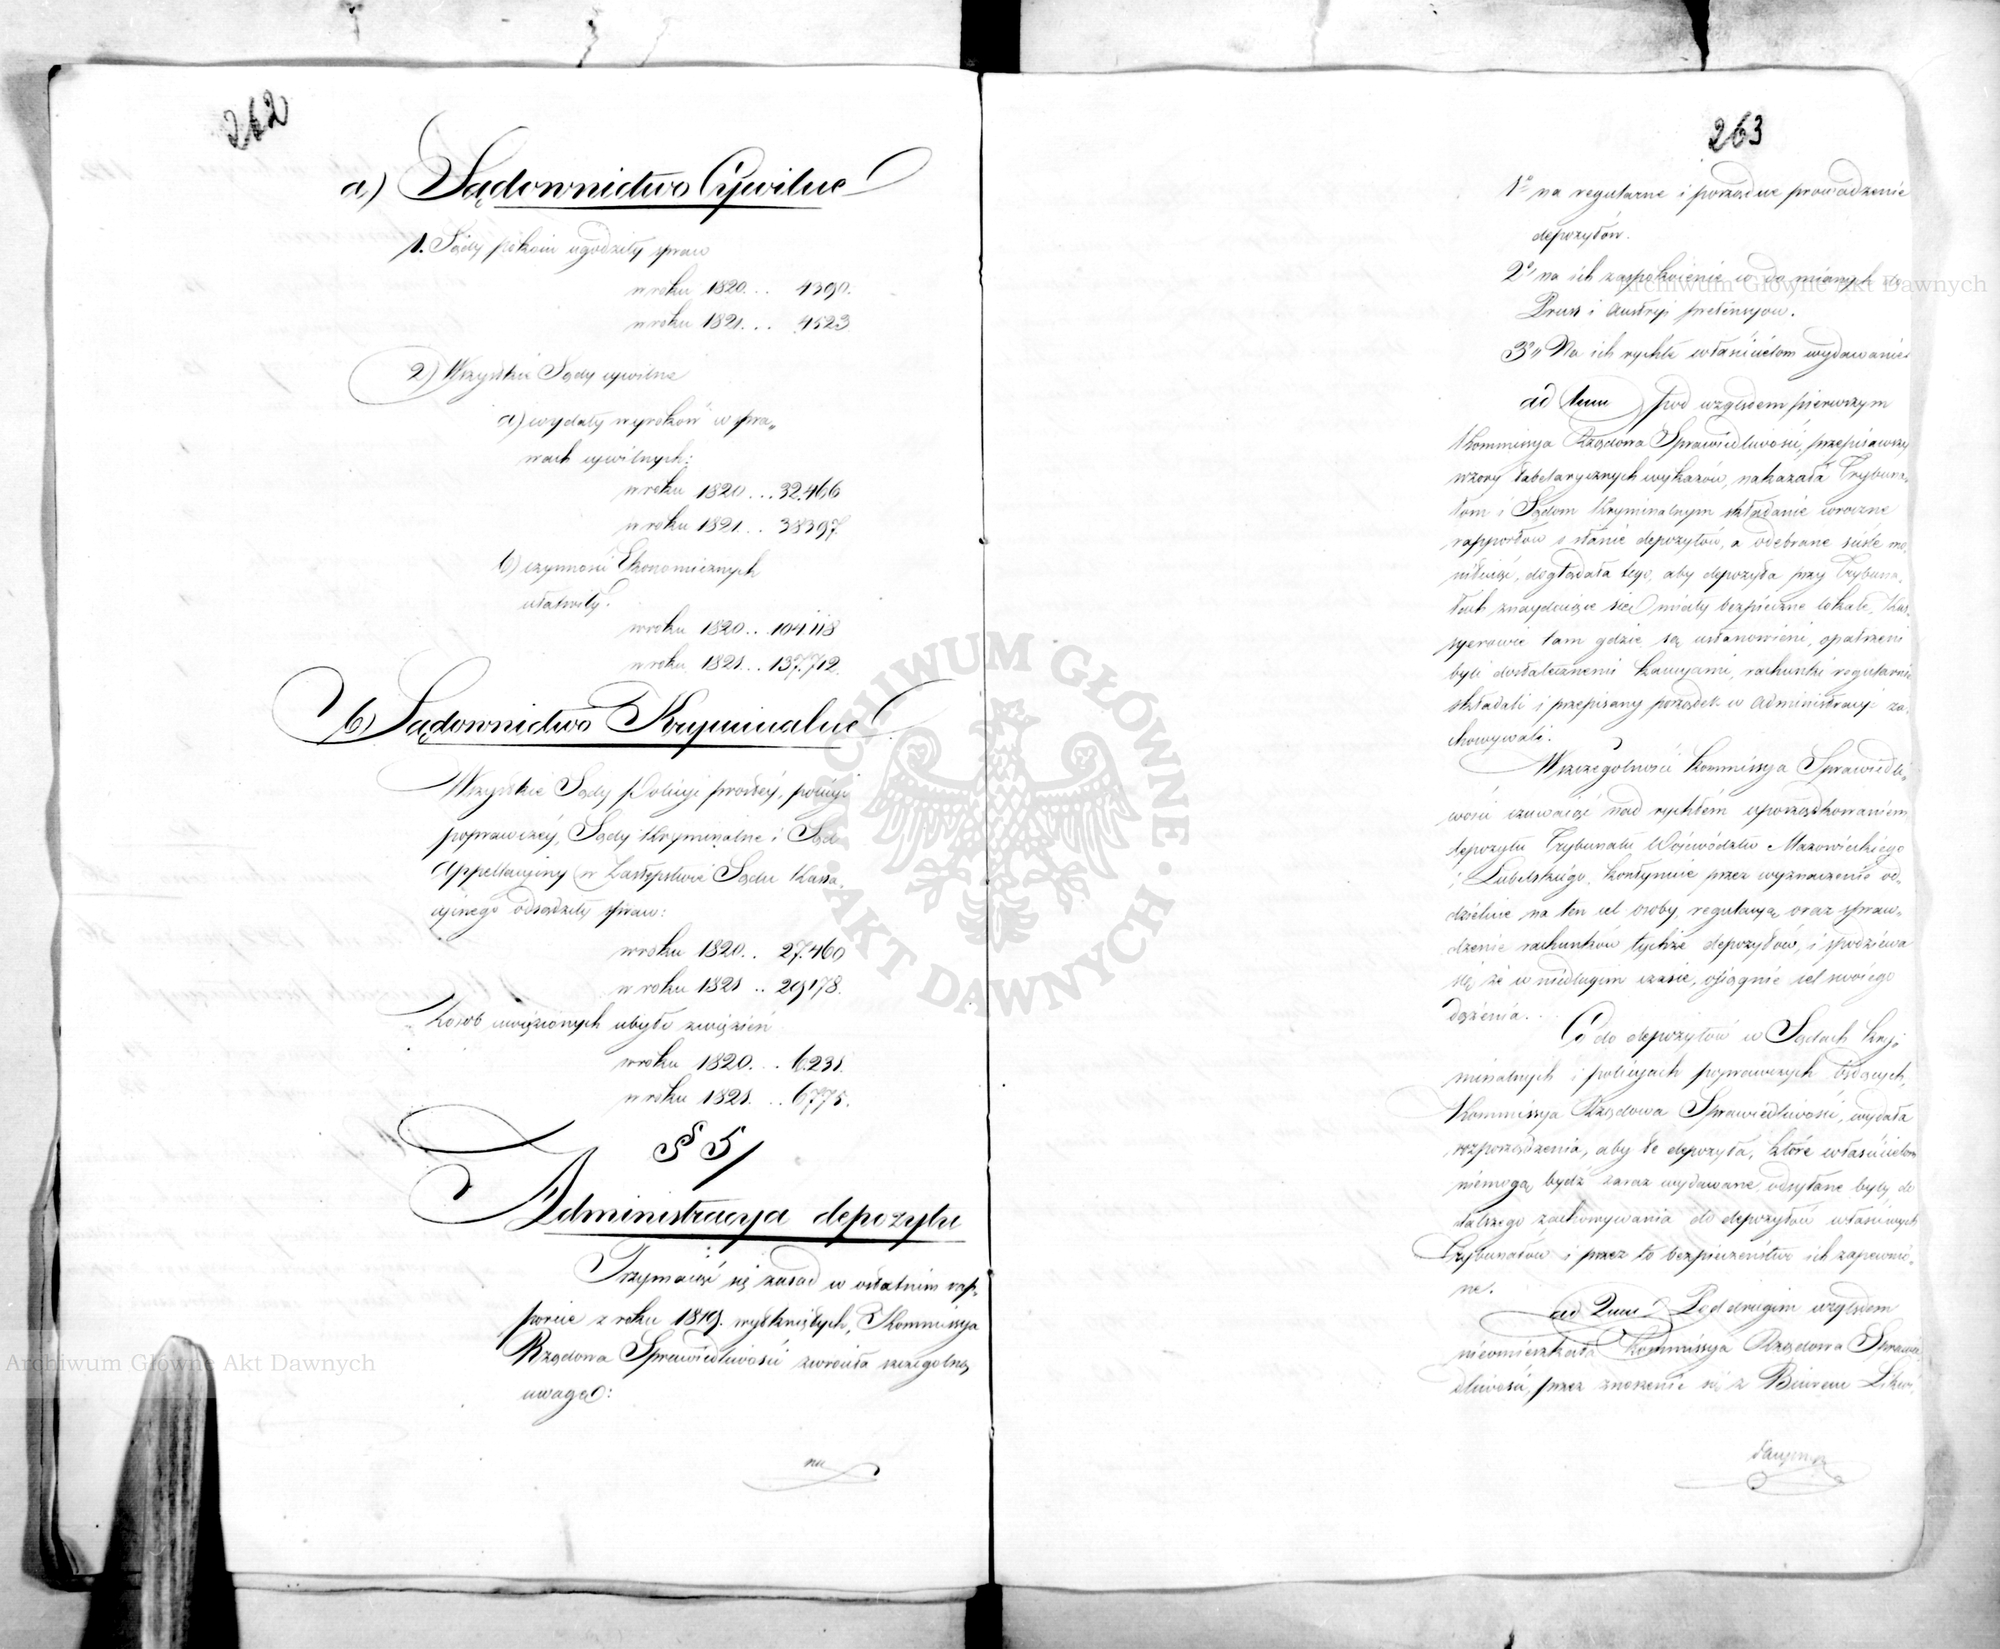 262
a) Sądownictwo Cywilne
1. Sądy pokoiu ugodziły spraw
w roku 1820... 4390.
w roku 1821... 4523
2) Wszystkie Sądy cywilne
a) wydały wyroków w spra„
wach cywilnych:
w roku 1820... 32.466
w roku 1821... 38397.
b) czynności Ekonomicznych
ułatwiły.
w roku 1820... 104.118
w roku 1821... 137.712.
b) Sądownictwo Kryminalne
Wszystkie Sądy Policyi prostéy, policyi
poprawczéy, Sądy Kryminalne i Sąd
Appellacyiny w Zastępstwie Sądu Kassa„
cyinego odsądziły spraw:
w roku 1820.. 27.460
w roku 1821.. 29178.
Z osób uwięzionych ubyło z więzień
w roku 1820... 6.231.
w roku 1821... 6775.
§ 5/
Administracya depozytu
Trzymaiąc się zasad w ostatnim rap„
porcie z roku 1819. wytkniętych, Kommissya
Rządowa Sprawiedliwości zwróciła szczególną
uwagę:
na
263
1o na regularne i porządne prowadzenie
depozytów.
2o na ich zaspokoienie co do mianych do
Pruss i Austryi pretensyów.
3o Na ich rychłe właścicielom wydawanie
ad 1mu Pod względem pierwszym
Kommissya Rządowa Sprawiedliwości, przepisawszy
wzory tabellarycznych wykazów, nakazała Trybuna„
łom i Sądom Kryminalnym składanie coroczne
rapportów o stanie depozytów, a odebrane ściśle
doglądała tego, aby depozyta przy Trybuna„
łach znayduiące się miały bezpieczne lokale, Kas„
syerowie tam gdzie są ustanowieni, opatrzeni
byli dostatecznemi kaucyami, rachunki regularnie
składali i przepisany porządek w Administracyi za„
chowywali.
W szczególności Kommissya Sprawiedli„
wości czuwaiąc nad rychłem uporządkowaniem
depozytu Trybunału Woiewództw Mazowieckiego
i Lubelskiego, kontynuie przez wyznaczenie od„
dzielne na ten cel osoby, regulacyą oraz spraw„
dzenie rachunków tychże depozytów, i spodziewa
się że w niedługim czasie, osiągnie cel swoiego
dążenia.
Co do depozytów w Sądach Kry„
minalnych i policyach poprawczych będących,
Kommissya Rządowa Sprawiedliwości, wydała
rozporządzenia, aby te depozyta, które właścicielom
niemogą bydź zaraz wydawane, odsyłane były do
dalszego zachowywania do depozytów właściwych
Trybunałów i przez to bezpieczeństwo ich zapewnio„
ne.
ad 2mu Pod drugim względem
nieomieszkała Kommissya Rządowa Sprawie„
dliwości, przez znoszenie się z Biurem Likwi„
dacyinem
Archiwum Główne Akt Dawnych
Archiwum Główne Akt Dawnych
ARCHIWUM GŁÓWNE
AKT DAWNYCH